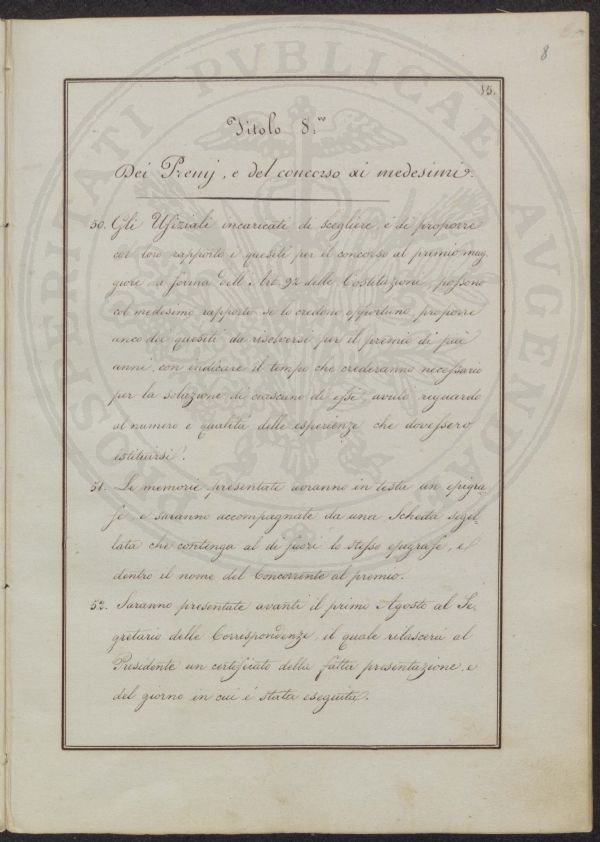 8
15.
Titolo 8.vo
Dei Premj, e del concorso ai medesimi.
50. Gli Ufiziali incaricati di scegliere, e di proporre
col loro rapporto i quesiti per il concorso al premio mag,
giore a forma dell'Art. 92 delle Costituzioni, possono
col medesimo rapporto se lo credono opportuno, proporre
anco dei quesiti da risolversi per il premio di più
anni, con indicare il tempo che crederanno necessario
per la soluzione di ciascuno di essi, avuto riguardo
al numero e qualità delle esperienze che dovessero
istituirsi.
51. Le memorie presentate avranno in testa un epigra,
fe, e saranno accompagnate da una Scheda sigil,
lata che contenga al di fuori lo stesso epigrafe, e
dentro il nome del Concorrente al premio.
52. Saranno presentate avanti il primo Agosto al Se,
gretario delle Corrispondenze, il quale rilascerà al
Presidente un certificato della fatta presentazione, e
del giorno in cui è stata eseguita.
PROSPERITATI PUBLICAE AUGENDAE